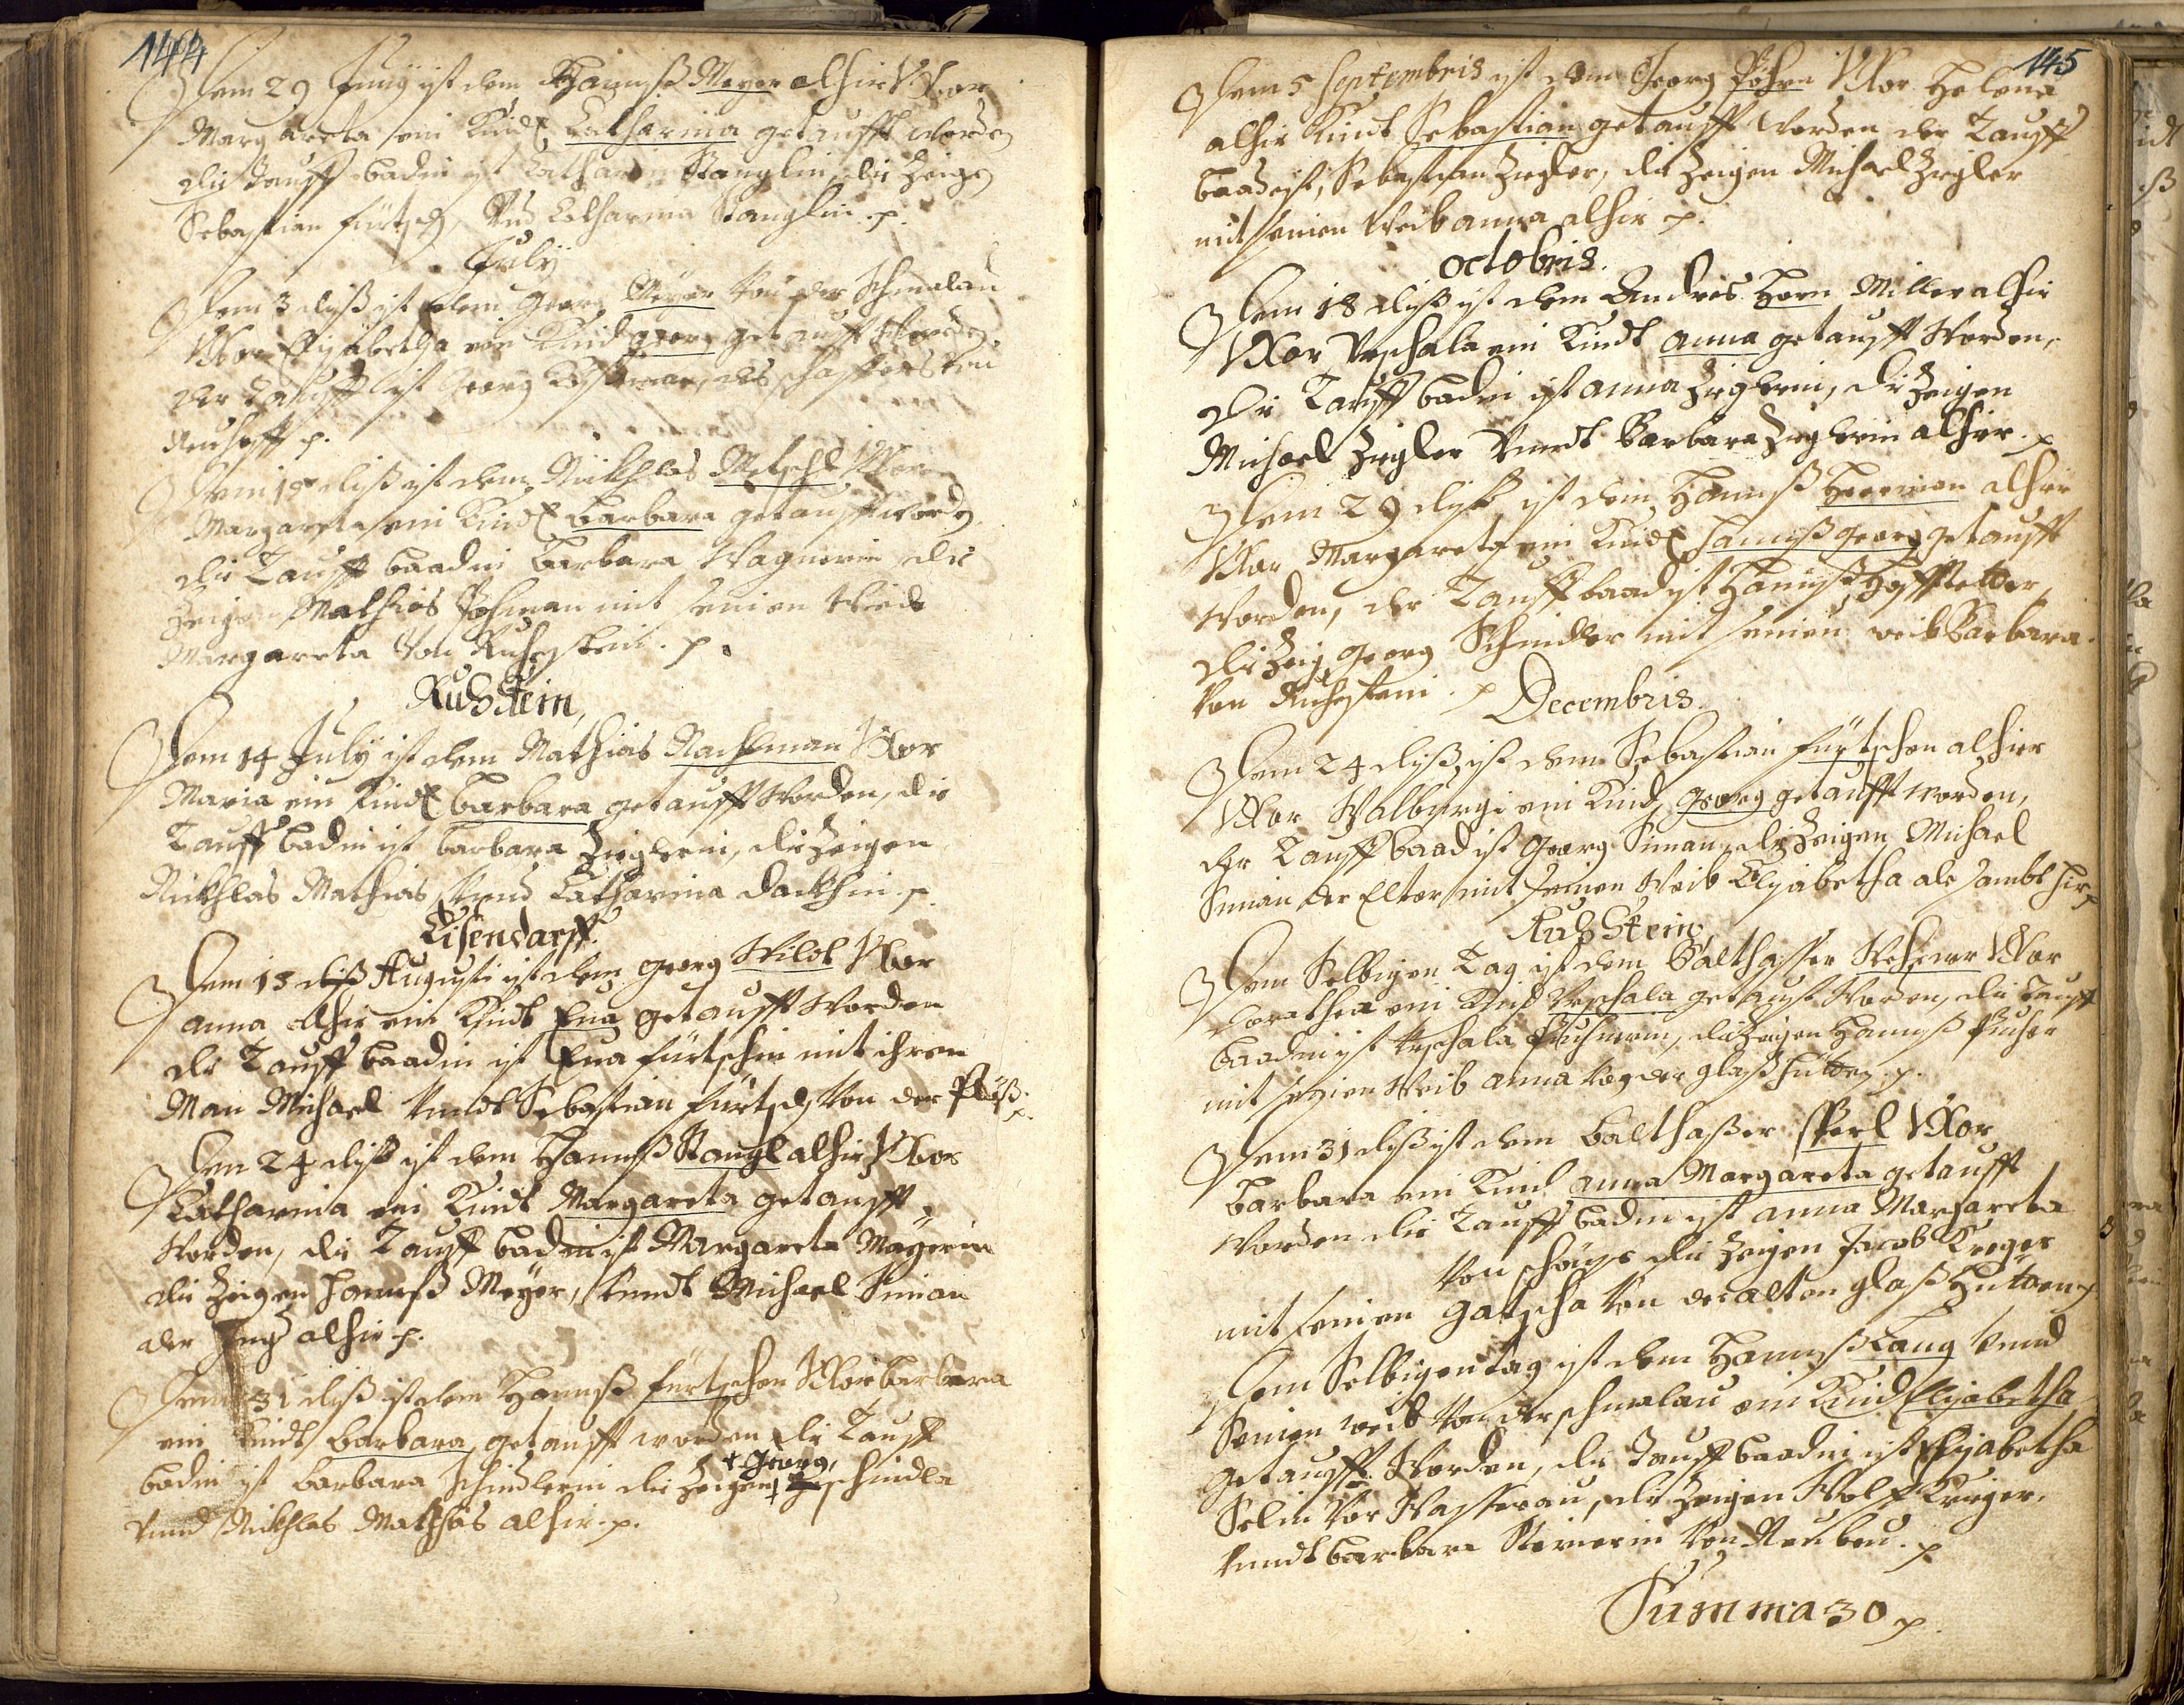 144
Dem 29 Juny ist dem Hannß Meyer alhir Uxor
Margareta ein Kindt Catharina getaufft worden
die Tauff badin ist Catharin Stanglin, die Zeigen
Sebastian fürtsch, Und Catharina Stanglin. p.
July
Dem 3 diß ist dem Georg Meyer von der Schmalau
Uxor Elisabetha ein Kind georg getaufft worden,
der Tauff ist Georg, des schaffers von
Neuhoff p.
Dem 10 diß ist dem Nickhlas Uxor
Margareta ein Kindt barbara getaufft worden
die Tauff baadin barbara Wagnerin die
Zeigen Mathias mit seinen Weib
Margareta von Ruhstein. p.
RuhStein,
Dem 14 July ist dem Mathias Nachtman Uxor
Maria ein Kindt barbara getaufft worden, die
Tauff badin ist barbara Zieglerin, die Zeigen
Nickhlas Mathias Vnnd Catharina p.
Eisendarff.
Dem 13 diß Augusti ist dem georg Wildt Uxor
anna alhir ein Kindt Eua getaufft worden
die Tauff baadin ist Eua fürtschin mit ihren
Man Michael Vnndt Sebastian fürtsch von der Plöß. p.
Dem 24 diß ist dem Hannß Stangl alhir Uxor
Catharina ein Kindt Margareta getaufft
worden, die Tauff badin ist Margareta Mayerin
die Zeigen Hannß Meyer, Vnndt Michael Siman
der Jung alhir p.
Dem 31 diß ist dem Hannß fürtschen Uxor barbara
ein Kindt barbara, getaufft worden die Tauff
+ Georg,
badin ist barbara schindlerin die Zeigen + schindla
Vnnd Nickhlas Mathias alhir. p.
145
Dem 5 Septembris ist dem Georg Uxor Helena
alhir Kindt Sebastian getaufft worden der Tauff
baad ist, Sebastian Ziegler, die Zeigen Michael Ziegler
mit seinen Weib anna alhir p.
octobris.
Dem 18 diß ist dem Andres Horn Miller alhir
Uxor Vrschala ein Kindt anna getaufft worden,
die Tauff badin ist anna Zieglerin, die Zeigen
Michael Ziegler Vnndt Barbara Zieglerin alhir. p
Dem 29 diß ist dem Hannß Herman alhir
Uxor Margareta ein Kindt hannß georg getaufft
worden, der Tauff baad ist Hannß Hoffstetter,
die Zeig, georg Schindler mit seinen weib Barbara
von Ruhstein. p
Decembris.
Dem 24 diß ist dem Sebastian fürtschen alhier
Uxor Walburgi ein Kind georg getaufft worden,
der Tauff baad ist Georg Siman die Zeigen Michael
Siman der Elter mit seinen Weib Elisabetha ale sambt hir p
RuhStein
Dem Selbigen Tag ist dem Balthasser Uxor
Dorathea ein Kind Vrschala getaufft worden, die Tauff
baadin ist Vrschala, die Zeigen Hannß
mit seinen Weib anna von der glaßhütten. p.
Dem 31 diß ist dem Balthaßer Uxor
barbara ein Kind anna Margareta getaufft
worden die Tauff badin ist anna Margareta
von die Zeigen Jacob Kreger
mit seinen von der alten glaß Hütten p
Dem Selbigen tag ist dem Hannß Lang Vnnd
Seinen weib von der schmalau ein Kind Elisabetha
getaufft worden, die Tauff baadin ist Elisabetha
Selin von Wasserau, die Zeigen Wolf Krieger,
Vnndt barbara von Neubau. p
Summa 30 p.